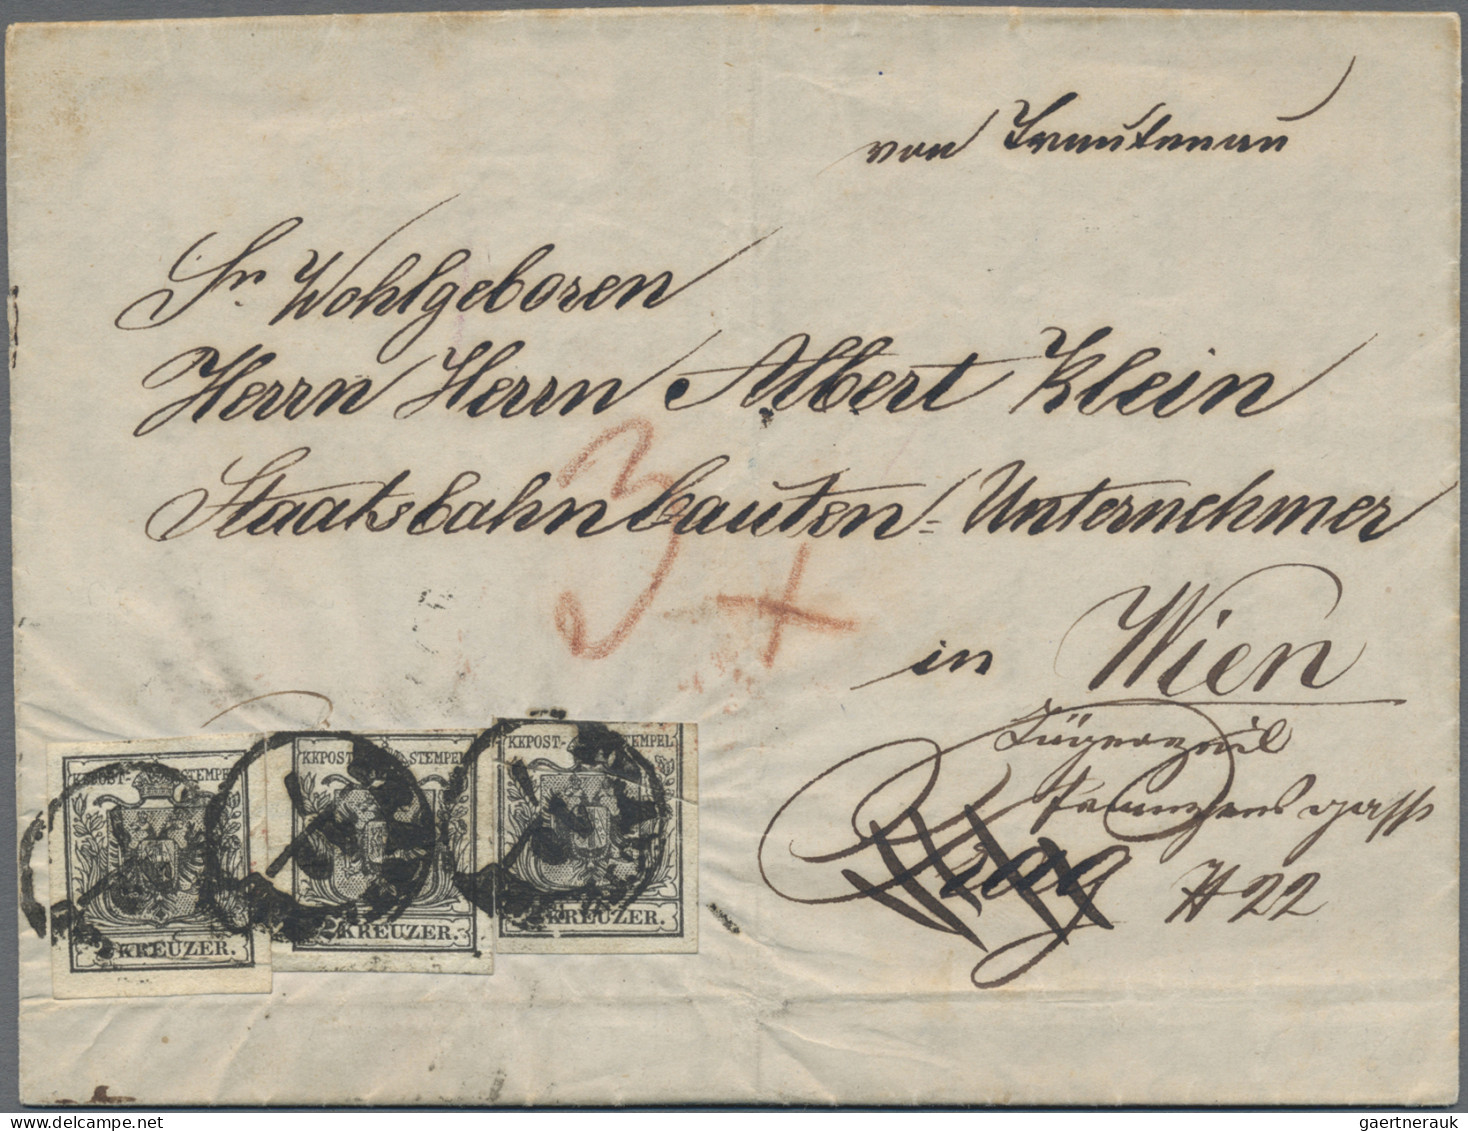 von Trautenau
Sr. Wohlgeboren
Herrn Herrn Albert Klein
Staatsbahnbauten=Unternehmer
in Wien
Jägerzeil
gasse
Prag # 22
3
KKPOST-STEMPEL
KREUZER.
KKPOST-STEMPEL
2 KREUZER.
KKPOST-STEMPEL
KREUZER.
gaertnerauk